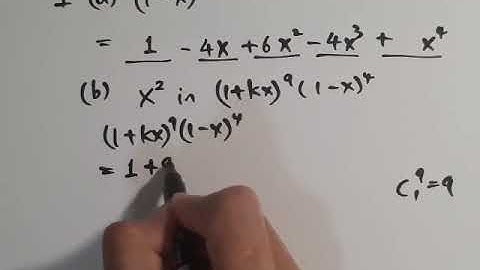 1 (a) (1-x)
= 1 - 4x + 6x² - 4x³ + x⁴
(b) x² in (1+kx)⁹ (1-x)⁴
(1+kx)⁹(1-x)⁴
= 1 + 9
C₁⁹ = 9